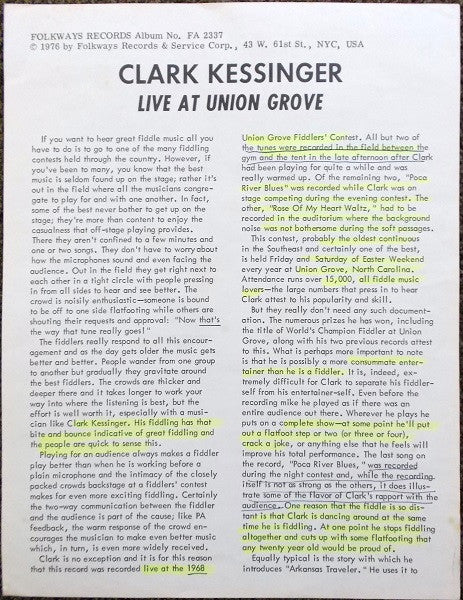 FOLKWAYS RECORDS Album No. FA 2337
© 1976 by Folkways Records & Service Corp., 43 W. 61st St., NYC, USA
CLARK KESSINGER
LIVE AT UNION GROVE
If you want to hear great fiddle music all you
have to do is to go to one of the many fiddling
contests held through the country. However, if
you've been to many, you know that the best
music is seldom found up on the stage; rather it's
out in the field where all the musicians congre-
gate to play for and with one another. In fact,
some of the best never bother to get up on the
stage; they're more than content to enjoy the
casualness that off-stage playing provides.
There they aren't confined to a few minutes and
one or two songs. They don't have to worry about
how the microphones sound and even facing the
audience. Out in the field they get right next to
each other in a tight circle with people pressing
in from all sides to hear and see better. The
crowd is noisily enthusiastic—someone is bound
to be off to one side flatfooting while others are
shouting their requests and approval: "Now that's
the way that tune really goes!"
The fiddlers really respond to all this encour-
agement and as the day gets older the music gets
better and better. People wander from one group
to another but gradually they gravitate around
the best fiddlers. The crowds are thicker and
deeper there and it takes longer to work your
way into where the listening is best, but the
effort is well worth it, especially with a musi-
cian like Clark Kessinger. His fiddling has that
bite and bounce indicative of great fiddling and
the people are quick to sense this.
Playing for an audience always makes a fiddler
play better than when he is working before a
plain microphone and the intimacy of the closely
packed crowds backstage at a fiddlers' contest
makes for even more exciting fiddling. Certainly
the two-way communication between the fiddler
and the audience is part of the cause; like PA
feedback, the warm response of the crowd en-
courages the musician to make even better music
which, in turn, is even more widely received.
Clark is no exception and it is for this reason
that this record was recorded live at the 1968
Union Grove Fiddlers' Contest. All but two of
the tunes were recorded in the field between the
gym and the tent in the late afternoon after Clark
had been playing for quite a while and was
really warmed up. Of the remaining two, "Poca
River Blues" was recorded while Clark was on
stage competing during the evening contest. The
other, "Rose Of My Heart Waltz," had to be
recorded in the auditorium where the background
noise was not bothersome during the soft passages.
This contest, probably the oldest continuous
in the Southeast and certainly one of the best,
is held Friday and Saturday of Easter Weekend
every year at Union Grove, North Carolina.
Attendance runs over 15,000, all fiddle music
lovers—the large numbers that press in to hear
Clark attest to his popularity and skill.
But they really don't need any such document-
ation. The numerous prizes he has won, including
the title of World's Champion Fiddler at Union
Grove, along with his two previous records attest
to this. What is perhaps more important to note
is that he is possibly a more consummate enter-
tainer than he is a fiddler. It is, indeed, ex-
tremely difficult for Clark to separate his fiddler-
self from his entertainer-self. Even before the
recording mike he played as if there was an
entire audience out there. Wherever he plays he
puts on a complete show—at some point he'll put
out a flatfoot step or two (or three or four),
crack a joke, or anything else that he feels will
improve his total performance. The last song on
the record, "Poca River Blues," was recorded
during the night contest and, while the recording
itself is not as strong as the others, it does illus-
trate some of the flavor of Clark's rapport with the
audience. One reason that the fiddle is so dis-
tant is that Clark is dancing around at the same
time he is fiddling. At one point he stops fiddling
altogether and cuts up with some flatfooting that
any twenty year old would be proud of.
Equally typical is the story with which he
introduces "Arkansas Traveler." He uses it to